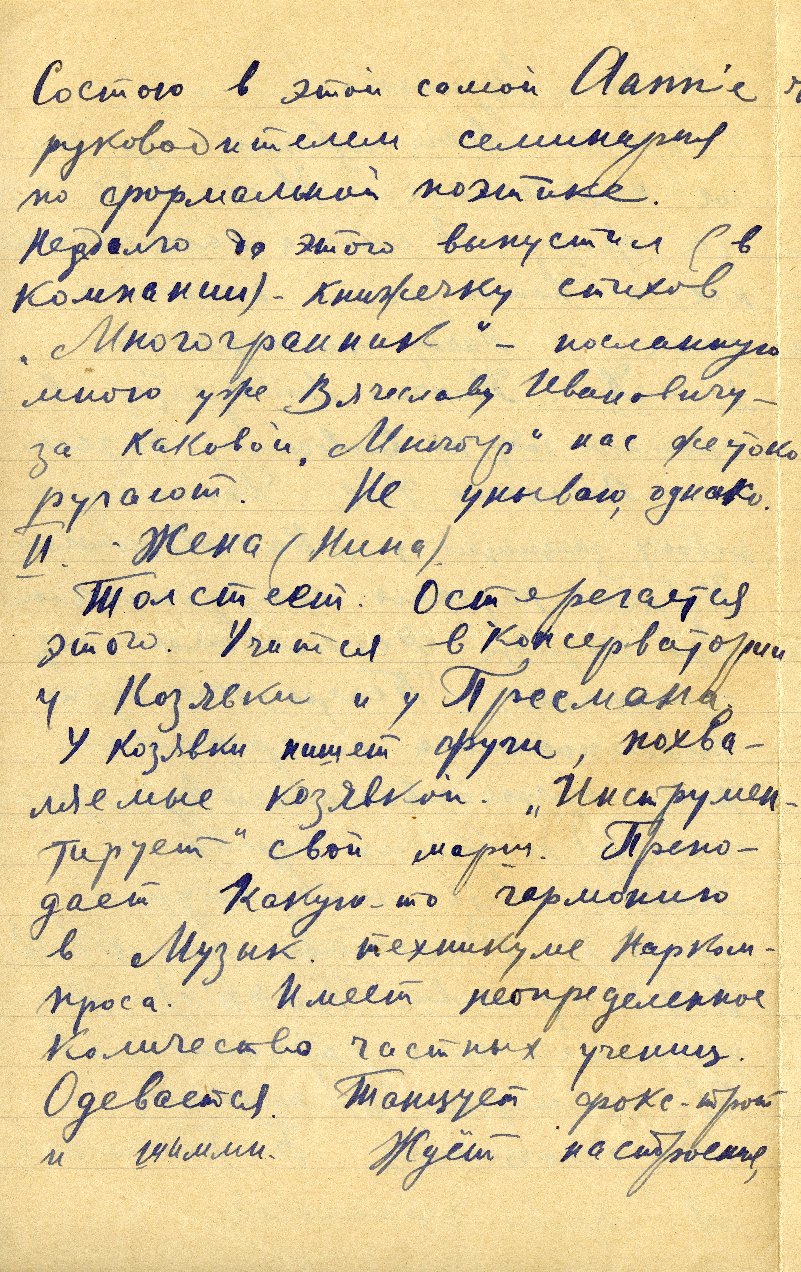 Состою в этой самой Aапп'е
руководителем семинария
по формальной поэтике.
Незадолго до этого выпустил (в
компании) - книжечку стихов
"Многогранник" - посланную
мною уже Вячеславу Ивановичу -
за каковой "Мночуг" нас жестоко
ругают. Не унываю, однако.
II. - Жена (Нина)
Толстеет. Остерегается
этого. Учится в Консерватории
у Козявки и у Пресмана.
У Козявки пишет фуги, похва-
ляемые козявкой. "Инструмен-
тирует" свой марш. Препо-
дает какую-то гармонию
в Музык. техникуме Нарком-
проса. Имеет неопределенное
количество частных учениц.
Одевается. Танцует фокс-трот
и шимми. Ждёт настроения,